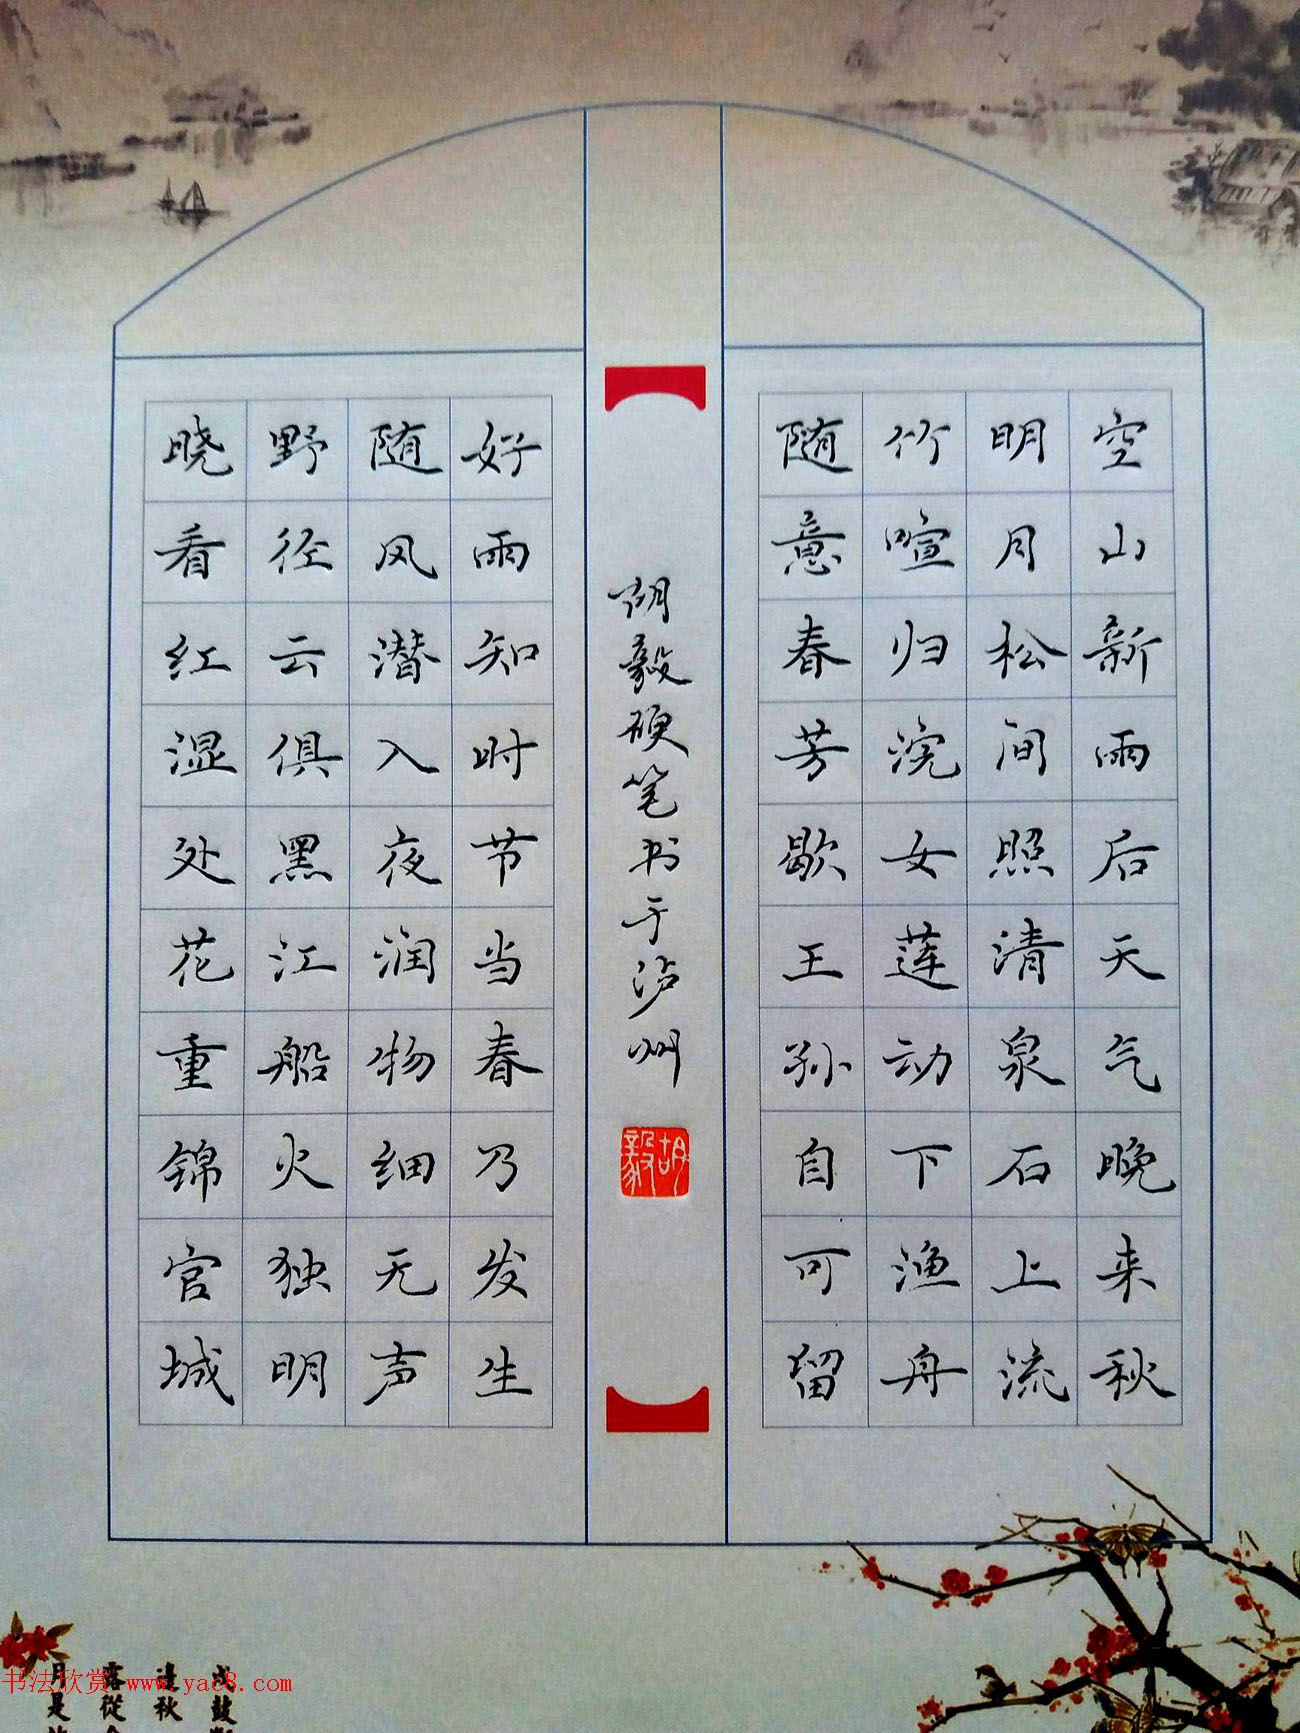 空山新雨后天气晚来秋
明月松间照清泉石上流
竹喧归浣女莲动下渔舟
随意春芳歇王孙自可留
胡毅硬笔书于泸州
胡毅
好雨知时节当春乃发生
随风潜入夜润物细无声
野径云俱黑江船火独明
晓看红湿处花重锦官城
戍鼓
边秋
露從
月是
书法欣赏 www.yac8.com